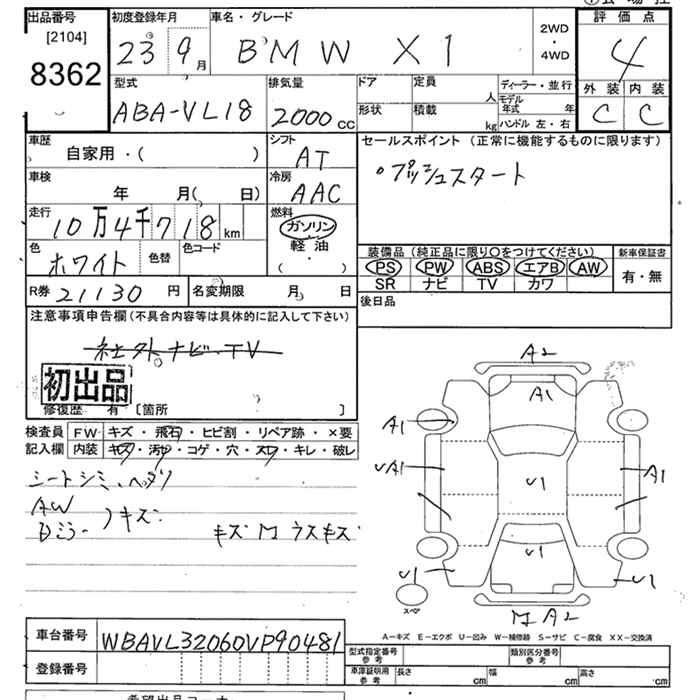 出品番号
[2104]
8362
初度登録年月
23 9月
車名・グレード
BMW X1
2WD
・
4WD
評価点
4
外装 内装
C C
型式
ABA-VL18
排気量
2000cc
ドア 定員 人
形状 積載 kg
ディーラー・並行
モデル年式 年
ハンドル 左・右
車歴
自家用・( )
シフト
AT
車検
年 月( 日)
冷房
AAC
走行
10万4千718km
燃料
ガソリン
軽油
( ・ )
色
ホワイト
色替
色コード
R券 21130円
名変期限 月 日
セールスポイント (正常に機能するものに限ります)
◦プッシュスタート
装備品(純正品に限り〇をつけてください)
PS PW ABS エアB AW
SR ナビ TV カワ
新車保証書
有・無
後日品
注意事項申告欄(不具合内容等は具体的に記入して下さい)
社外ナビ.TV
初出品
修復歴 有 [箇所 ]
検査員 FW キズ・飛石・ヒビ割・リペア跡・×要
記入欄 内装 キズ・汚れ・コゲ・穴・スレ・キレ・破レ
シートシミ、ヘタリ
AW
Bミラー キズ
キズ M ウスキズ
A2
A1
A1
UA1
U1
A1
U1
U1
U1
スペア
M A2
A―キズ E―エクボ U―凹み W―補修跡 S―サビ C―腐食 XX―交換済
車台番号 WBAVL32060VP90481
登録番号
型式指定番号
参考
類別区分番号
参考
車庫証明用
参考
長さ cm 幅 cm 高さ cm